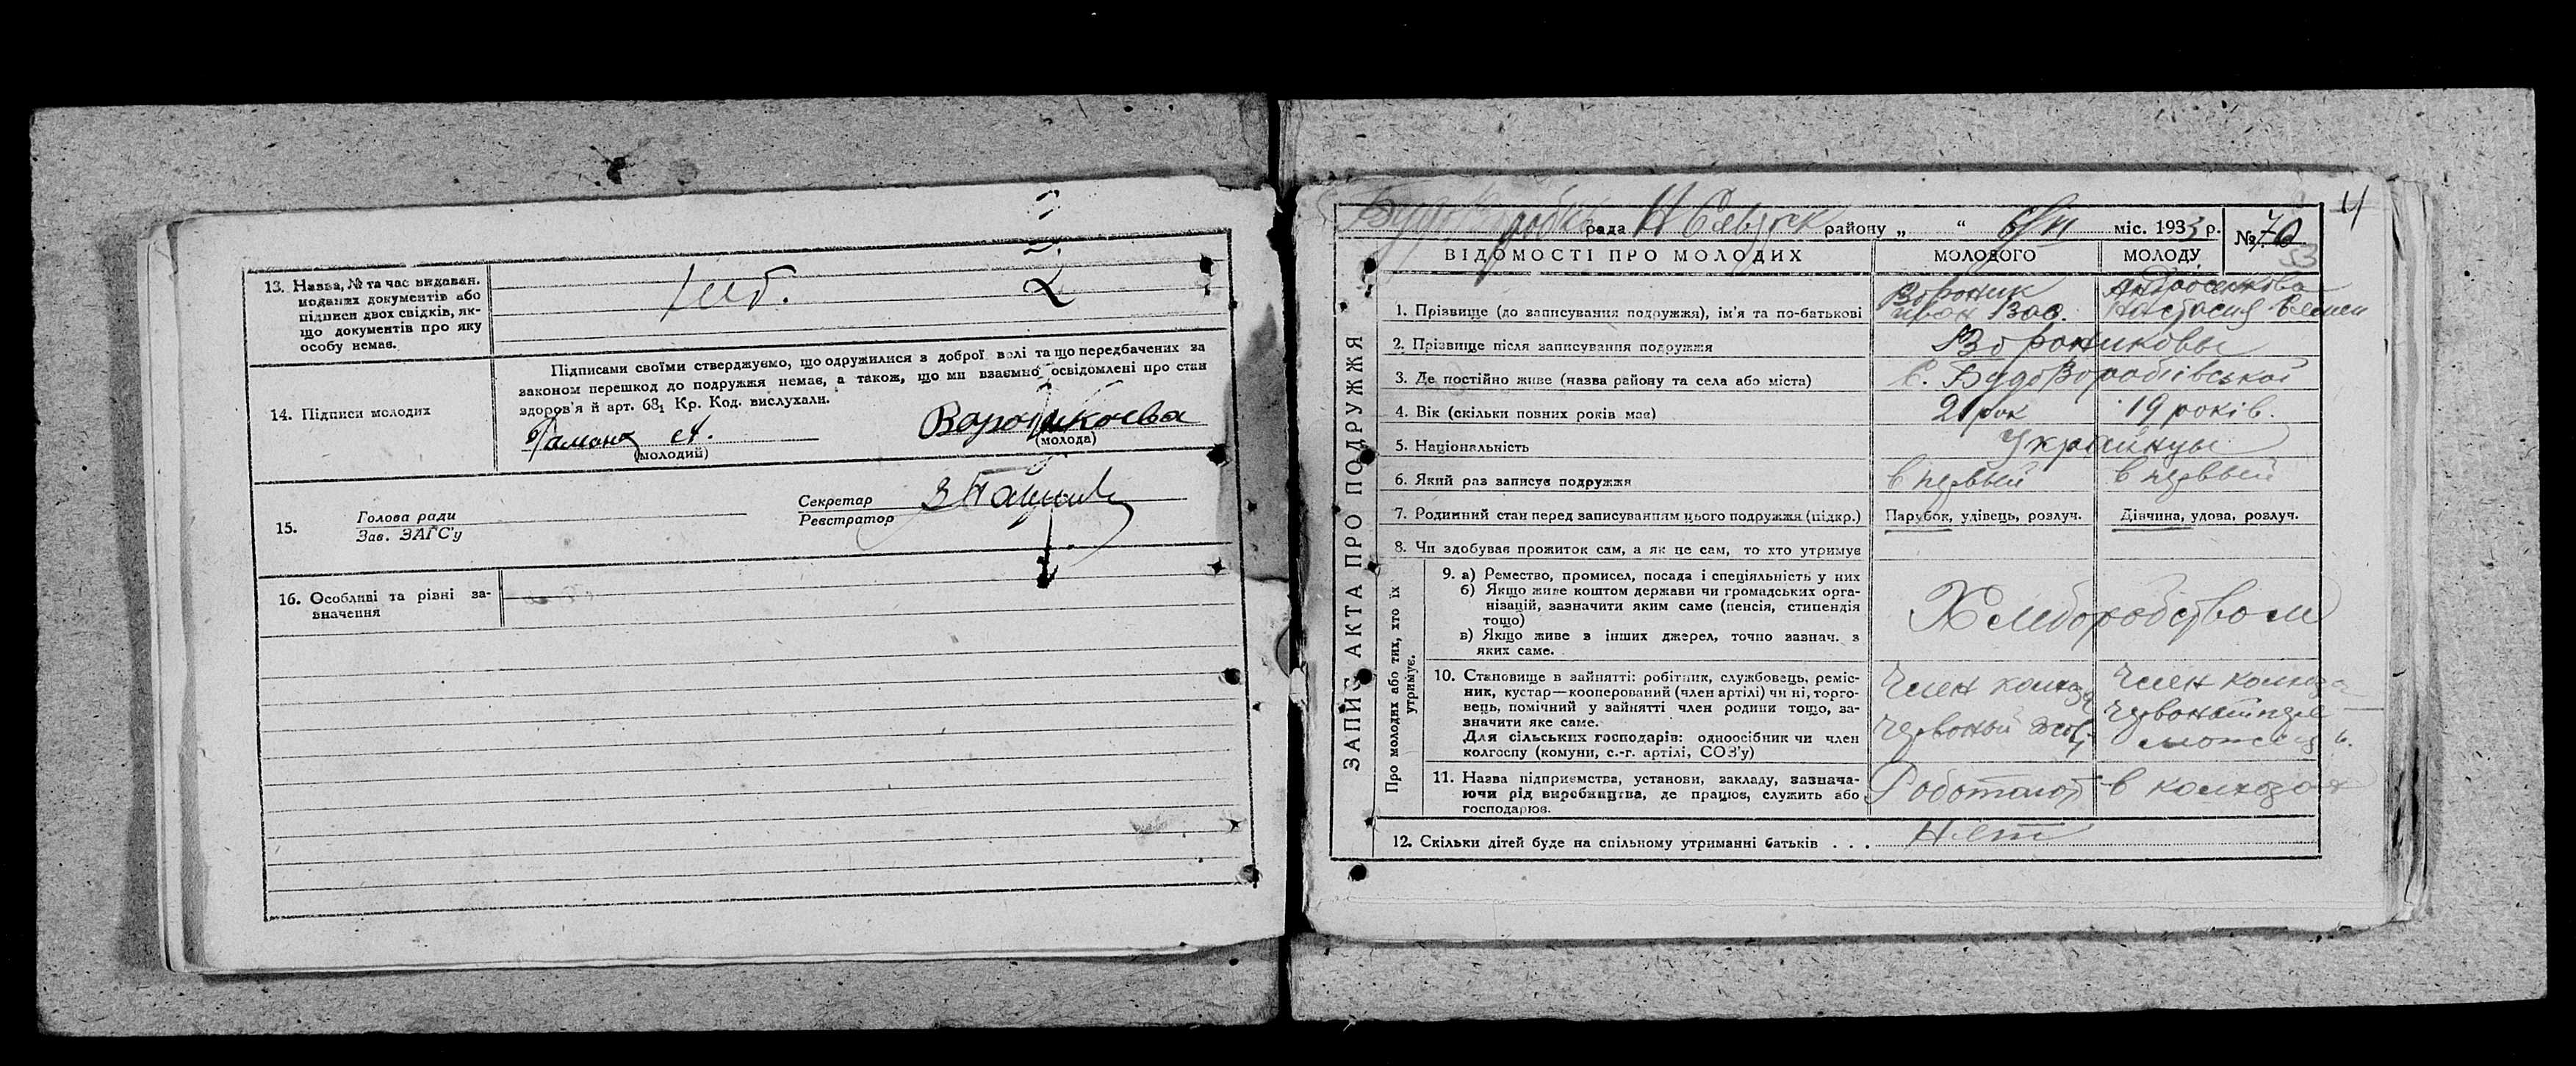 13. Назва, № та час видаван.
поданих документів або
підписи двох свідків, як-
що документів про яку
особу немає.
14. Підписи молодих
Підписами своїми стверджуємо, що одружилися з доброї волі та що передбачених за
законом перешкод до подружжя немає, а також, що ми взаємно освідомлені про стан
здоров'я й арт. 68₁ Кр. Код. вислухали.
(молодий)
(молода)
15.
Голова ради
Зав. ЗАГС'у
Секретар
Реєстратор
16. Особливі та рівні за-
значення
4
рада Н Сіверск району „ “ 6/VI міс. 1933 р.
№ 70
53
ЗАПИС АКТА ПРО ПОДРУЖЖЯ
ВІДОМОСТІ ПРО МОЛОДИХ
МОЛОДОГО
МОЛОДУ
1. Прізвище (до записування подружжя), ім'я та по-батькові
Вороник
Иван Вас.
Настасия
2. Прізвище після записування подружжя
Ворониковы
3. Де постійно живе (назва району та села або міста)
с. БудоВоробіївської
4. Вік (скільки повних років має)
21 рок
19 років.
5. Національність
Украинцы
6. Який раз записує подружжя
в первый
в первый
7. Родинний стан перед записуванням цього подружжя (підкр.)
Парубок, удівець, розлуч.
Дівчина, удова, розлуч.
8. Чи здобуває прожиток сам, а як не сам, то хто утримує
Про молодих або тих, хто їх
утримує.
9. а) Ремество, промисел, посада і спеціяльність у них
б) Якщо живе коштом держави чи громадських орга-
нізацій, зазначити яким саме (пенсія, стипендія
тощо)
в) Якщо живе з інших джерел, точно зазнач. з
яких саме.
Хлеборобством
10. Становище в зайнятті: робітник, службовець, реміс-
ник, кустар—кооперований (член артілі) чи ні, торго-
вець, помічний у зайнятті член родини тощо, за-
значити яке саме.
Для сільських господарів: одноосібник чи член
колгоспу (комуни, с.-г. артілі, СОЗ'у)
Член колхоза
Член колхоза
11. Назва підприємства, установи, закладу, зазнача-
ючи рід виробництва, де працює, служить або
господарює.
Роботают в колхозах
12. Скільки дітей буде на спільному утриманні батьків . . .
Нет